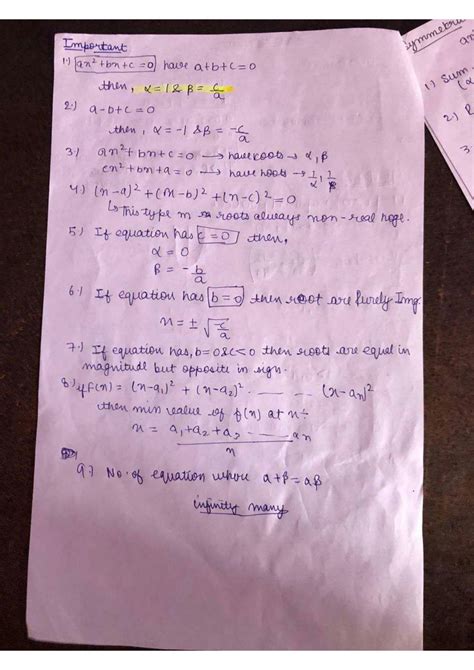 Important
1.) ax²+bx+c=0 have a+b+c=0
then, α=1 & β= c/a
2.) a-b+c=0
then, α=-1 & β= -c/a
3.) ax²+bx+c=0 → have roots → α, β
cx²+bx+a=0 → have roots → 1/α, 1/β
4.) (x-a)²+(x-b)²+(x-c)²=0
↳ This type m roots always non-real hoge.
5.) If equation has c=0 then,
α=0
β= -b/a
6.) If equation has b=0 then root are purely Img.
x= ± √(-c/a)
7.) If equation has, b=0 & c<0 then roots are equal in
magnitude but opposite in sign.
8.) If f(x) = (x-a₁)² + (x-a₂)² ... ... (x-an)²
then min value of f(x) at x ÷
x = a₁+a₂+a₃ ... an / n
9.) No. of equation whose α+β=αβ
infinity many
Symmetric
an
1) Sum
(α
2.)
3.